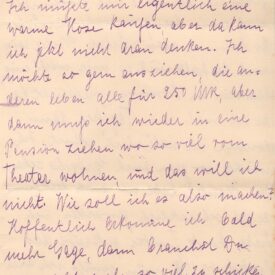 Ich müßte mir eigentlich eine
warme Hose kaufen aber da kann
ich jetzt nicht dran denken. Ich
möchte so gern ausziehen, die an-
deren leben alle für 250 MK, aber
dann muß ich wieder in eine
Pension ziehen wo so viel vom
Theater wohnen, und das will ich
nicht. Wie soll ich es also machen?
Hoffentlich bekomme ich bald
mehr Gage, dann brauchst Du
so viel zu schicken